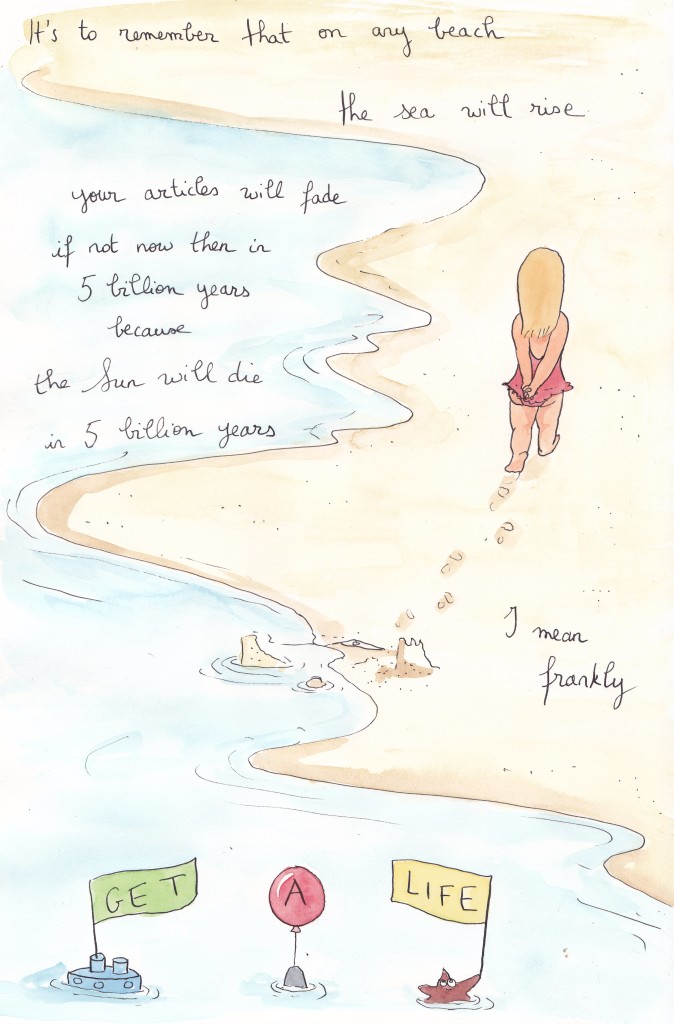 It's to remember that on any beach
the sea will rise
your articles will fade
if not now then in
5 billion years
because
the Sun will die
in 5 billion years
I mean
frankly
GET A LIFE